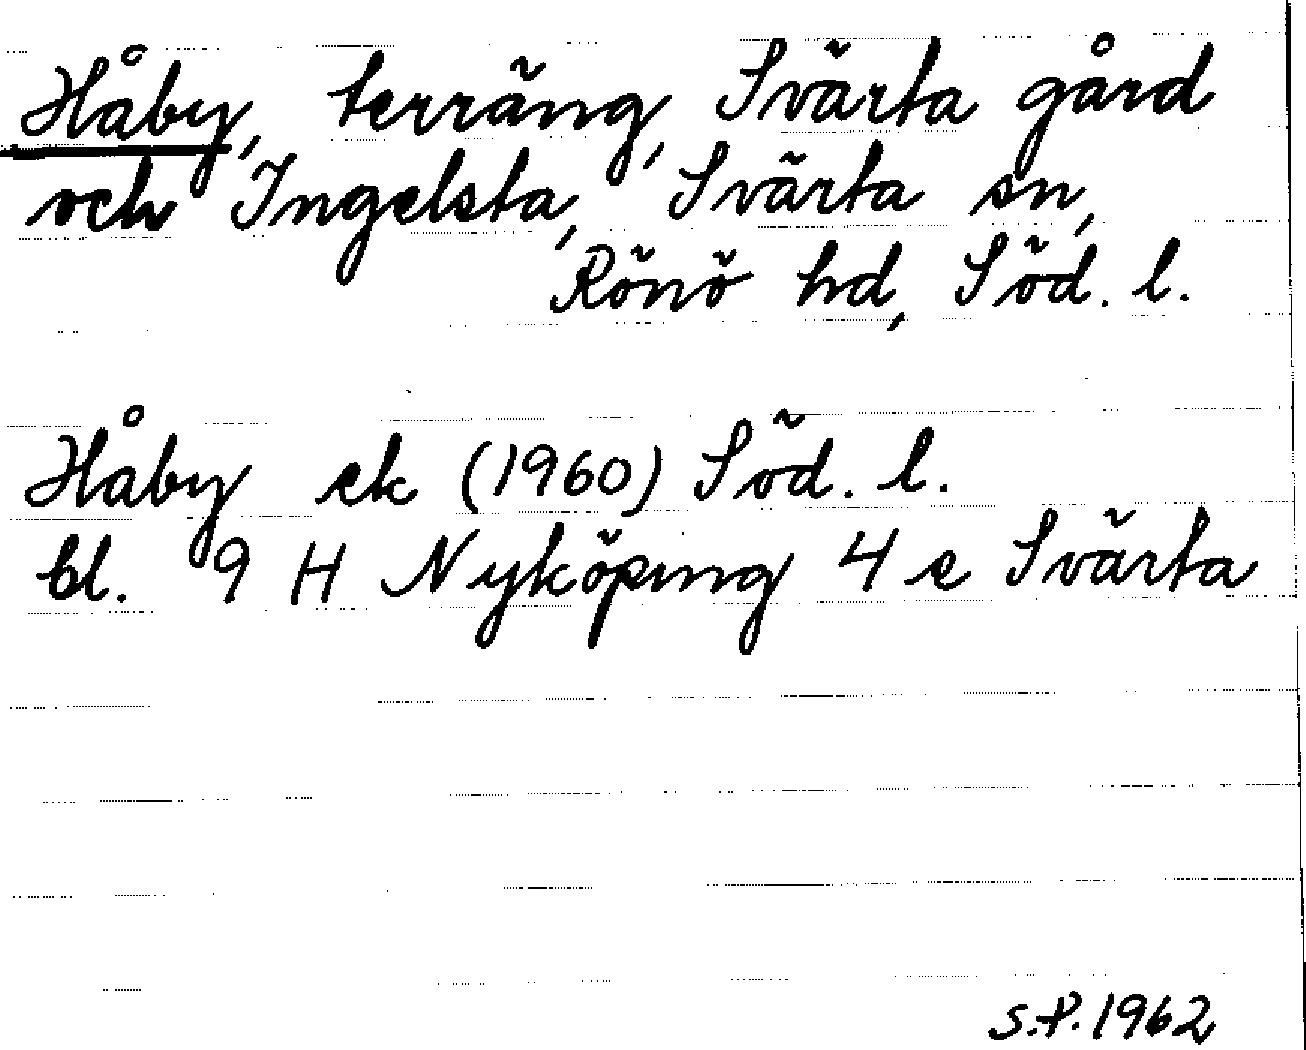 Håby, terräng, Svärta gård
och Ingelsta, Svärta sn,
Rönö hd, Söd. l.
Håby ek (1960) Söd. l.
bl. 9 H Nyköping 4 e Svärta
S.P. 1962